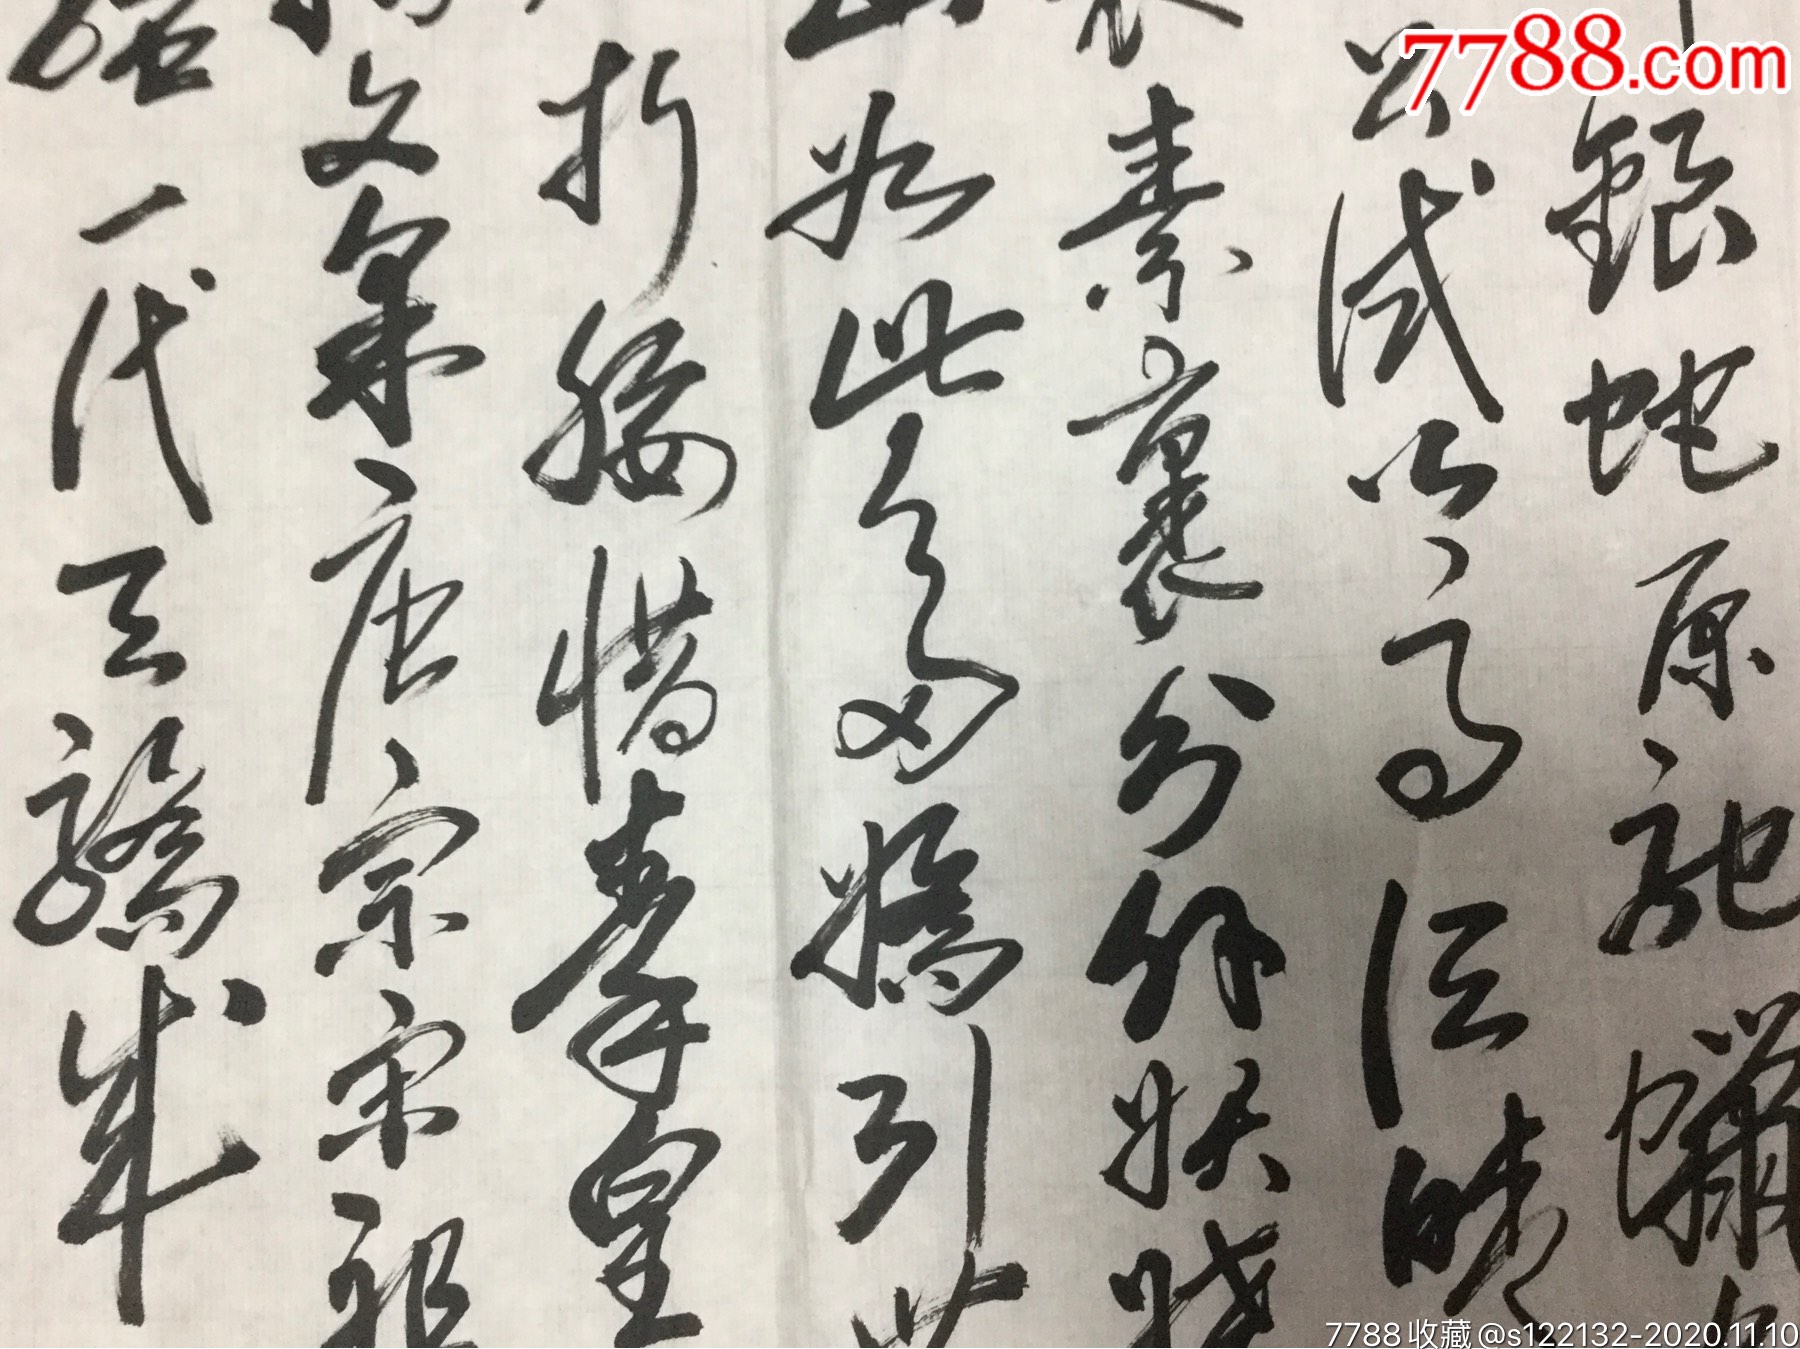 銀蛇原馳蠟
公試比高須晴
素裹分外妖嬈
山如此多嬌引
折腰惜秦皇
文采唐宗宋祖
一代天驕成
7788.com
7788收藏@s122132-2020.11.10